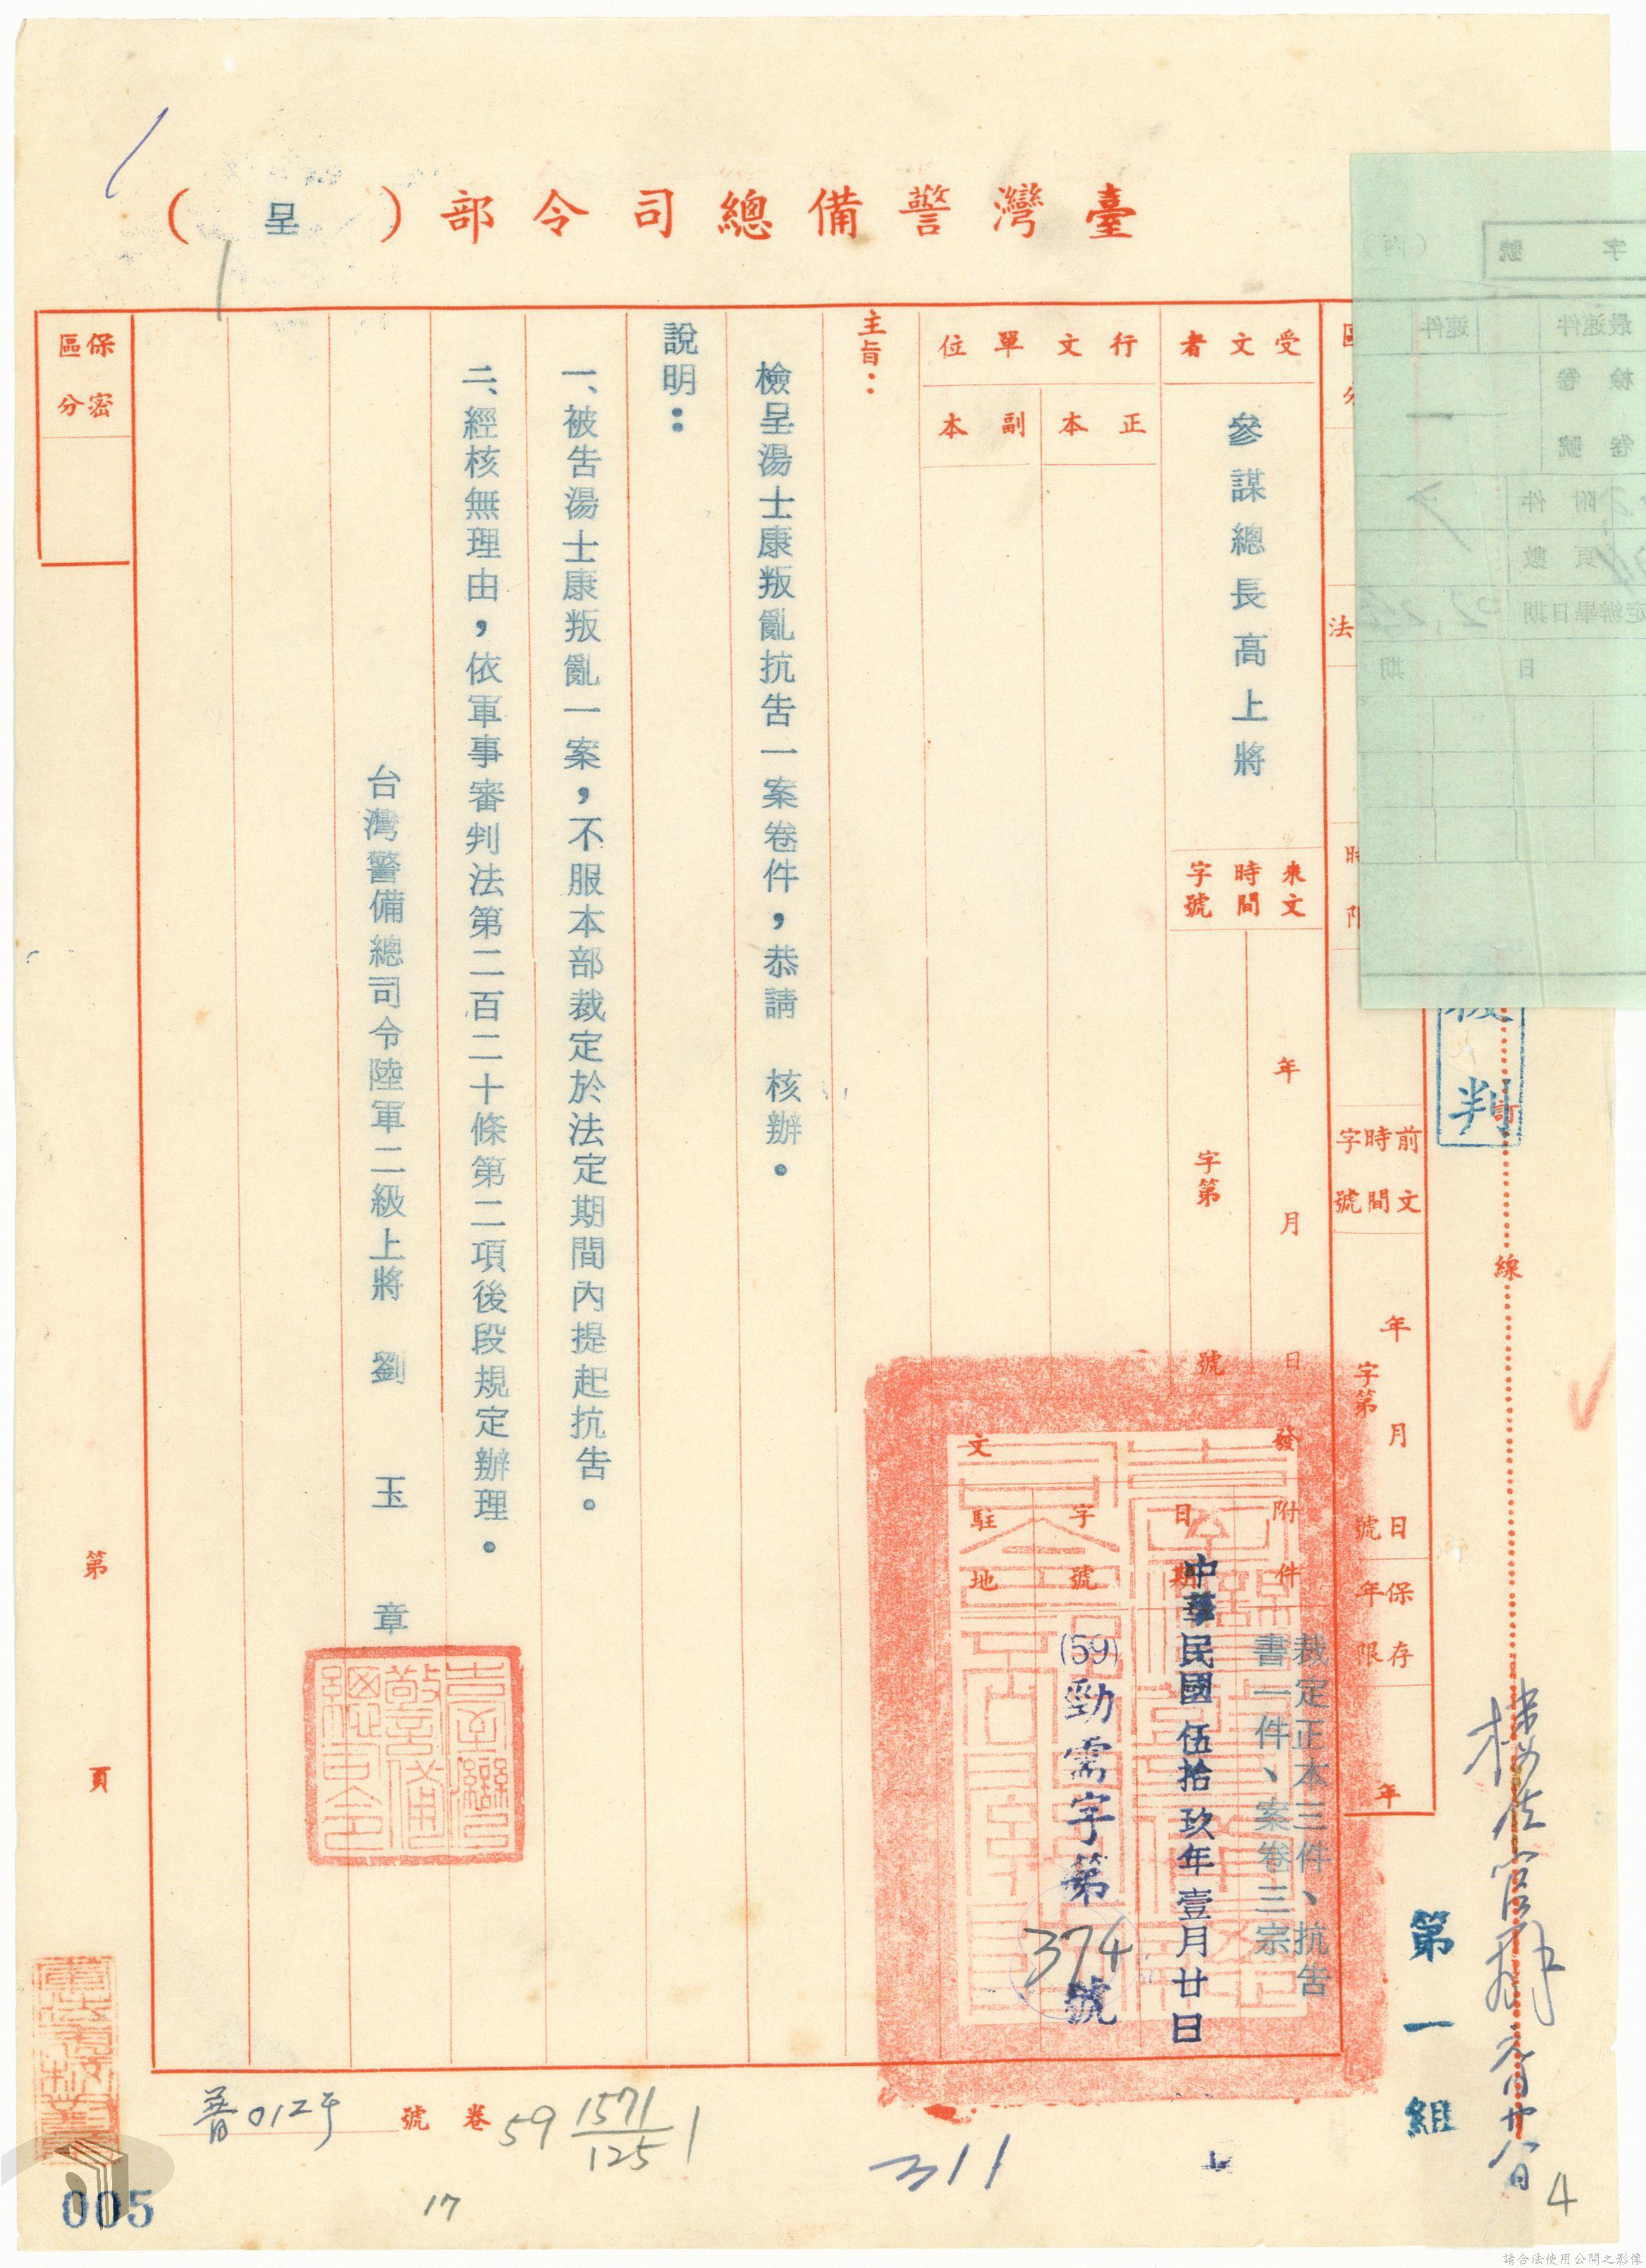 臺灣警備總司令部（呈）
受文者
參謀總長高上將
來文時間字號
年月日
字第號
前文時間字號
年月日
字第號
保存年限
年
行文單位
正本
副本
發文
附件
裁定正本三件、抗告
書一件、案卷三宗
日期
中華民國伍拾玖年壹月廿日
字號
(59)勁需字第374號
駐地
主旨：
檢呈湯士康叛亂抗告一案卷件，恭請　核辦。
說明：
一、被告湯士康叛亂一案，不服本部裁定於法定期間內提起抗告。
二、經核無理由，依軍事審判法第二百二十條第二項後段規定辦理。
台灣警備總司令陸軍二級上將　劉　玉　章
保密區分
第　頁
訂
線
判
第一組
卷號
普012字
59 1571/125 1
311
17
4
005
字號
最速件
速件
檢卷
卷號
附件
頁數
日期
請合法使用公開之影像